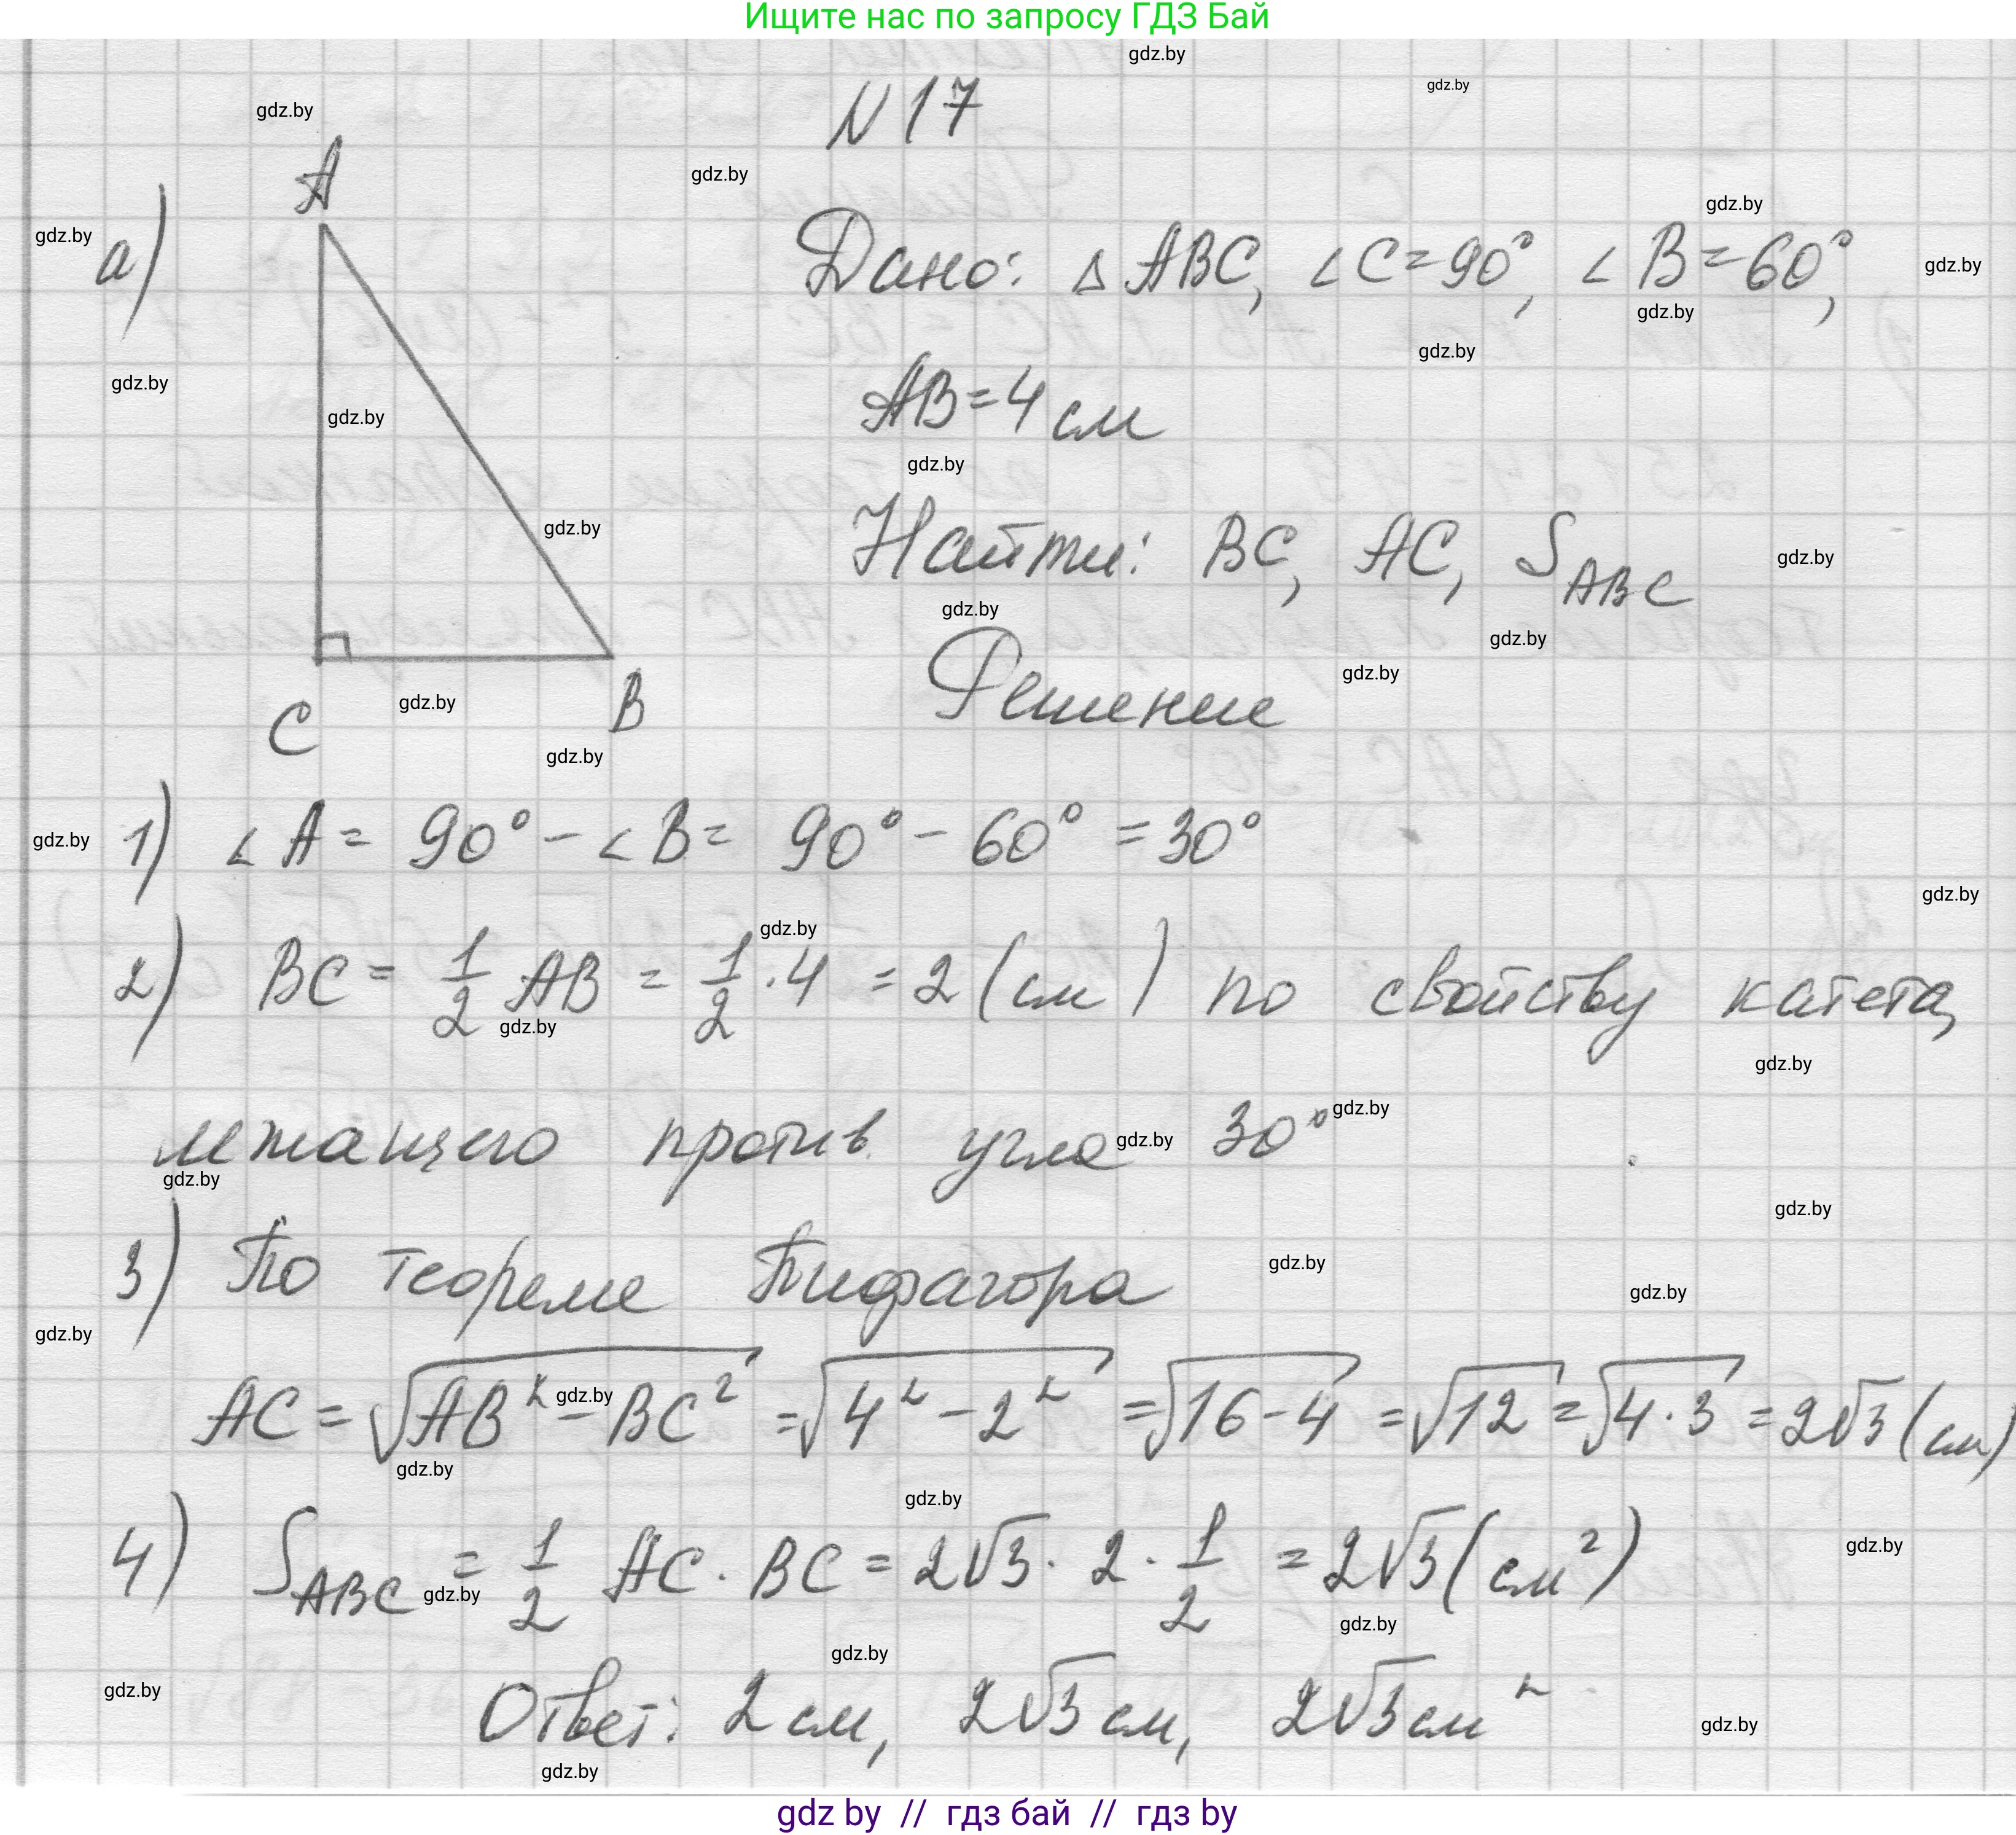 Ищите нас по запросу ГДЗ Бай
N 17
а)
A
C
B
Дано: △ ABC, ∠C=90°, ∠B=60°,
AB=4 см
Найти: BC, AC, S_ABC
Решение
1) ∠A = 90° − ∠B = 90° − 60° = 30°
2) BC = 1/2 AB = 1/2 · 4 = 2 (см) по свойству катета,
лежащего против угла 30°
3) По теореме Пифагора
AC = √(AB² − BC²) = √(4² − 2²) = √(16 − 4) = √12 = √(4 · 3) = 2√3 (см)
4) S_ABC = 1/2 AC · BC = 2√3 · 2 · 1/2 = 2√3 (см²)
Ответ: 2 см, 2√3 см, 2√3 см²
gdz by // гдз бай // гдз by